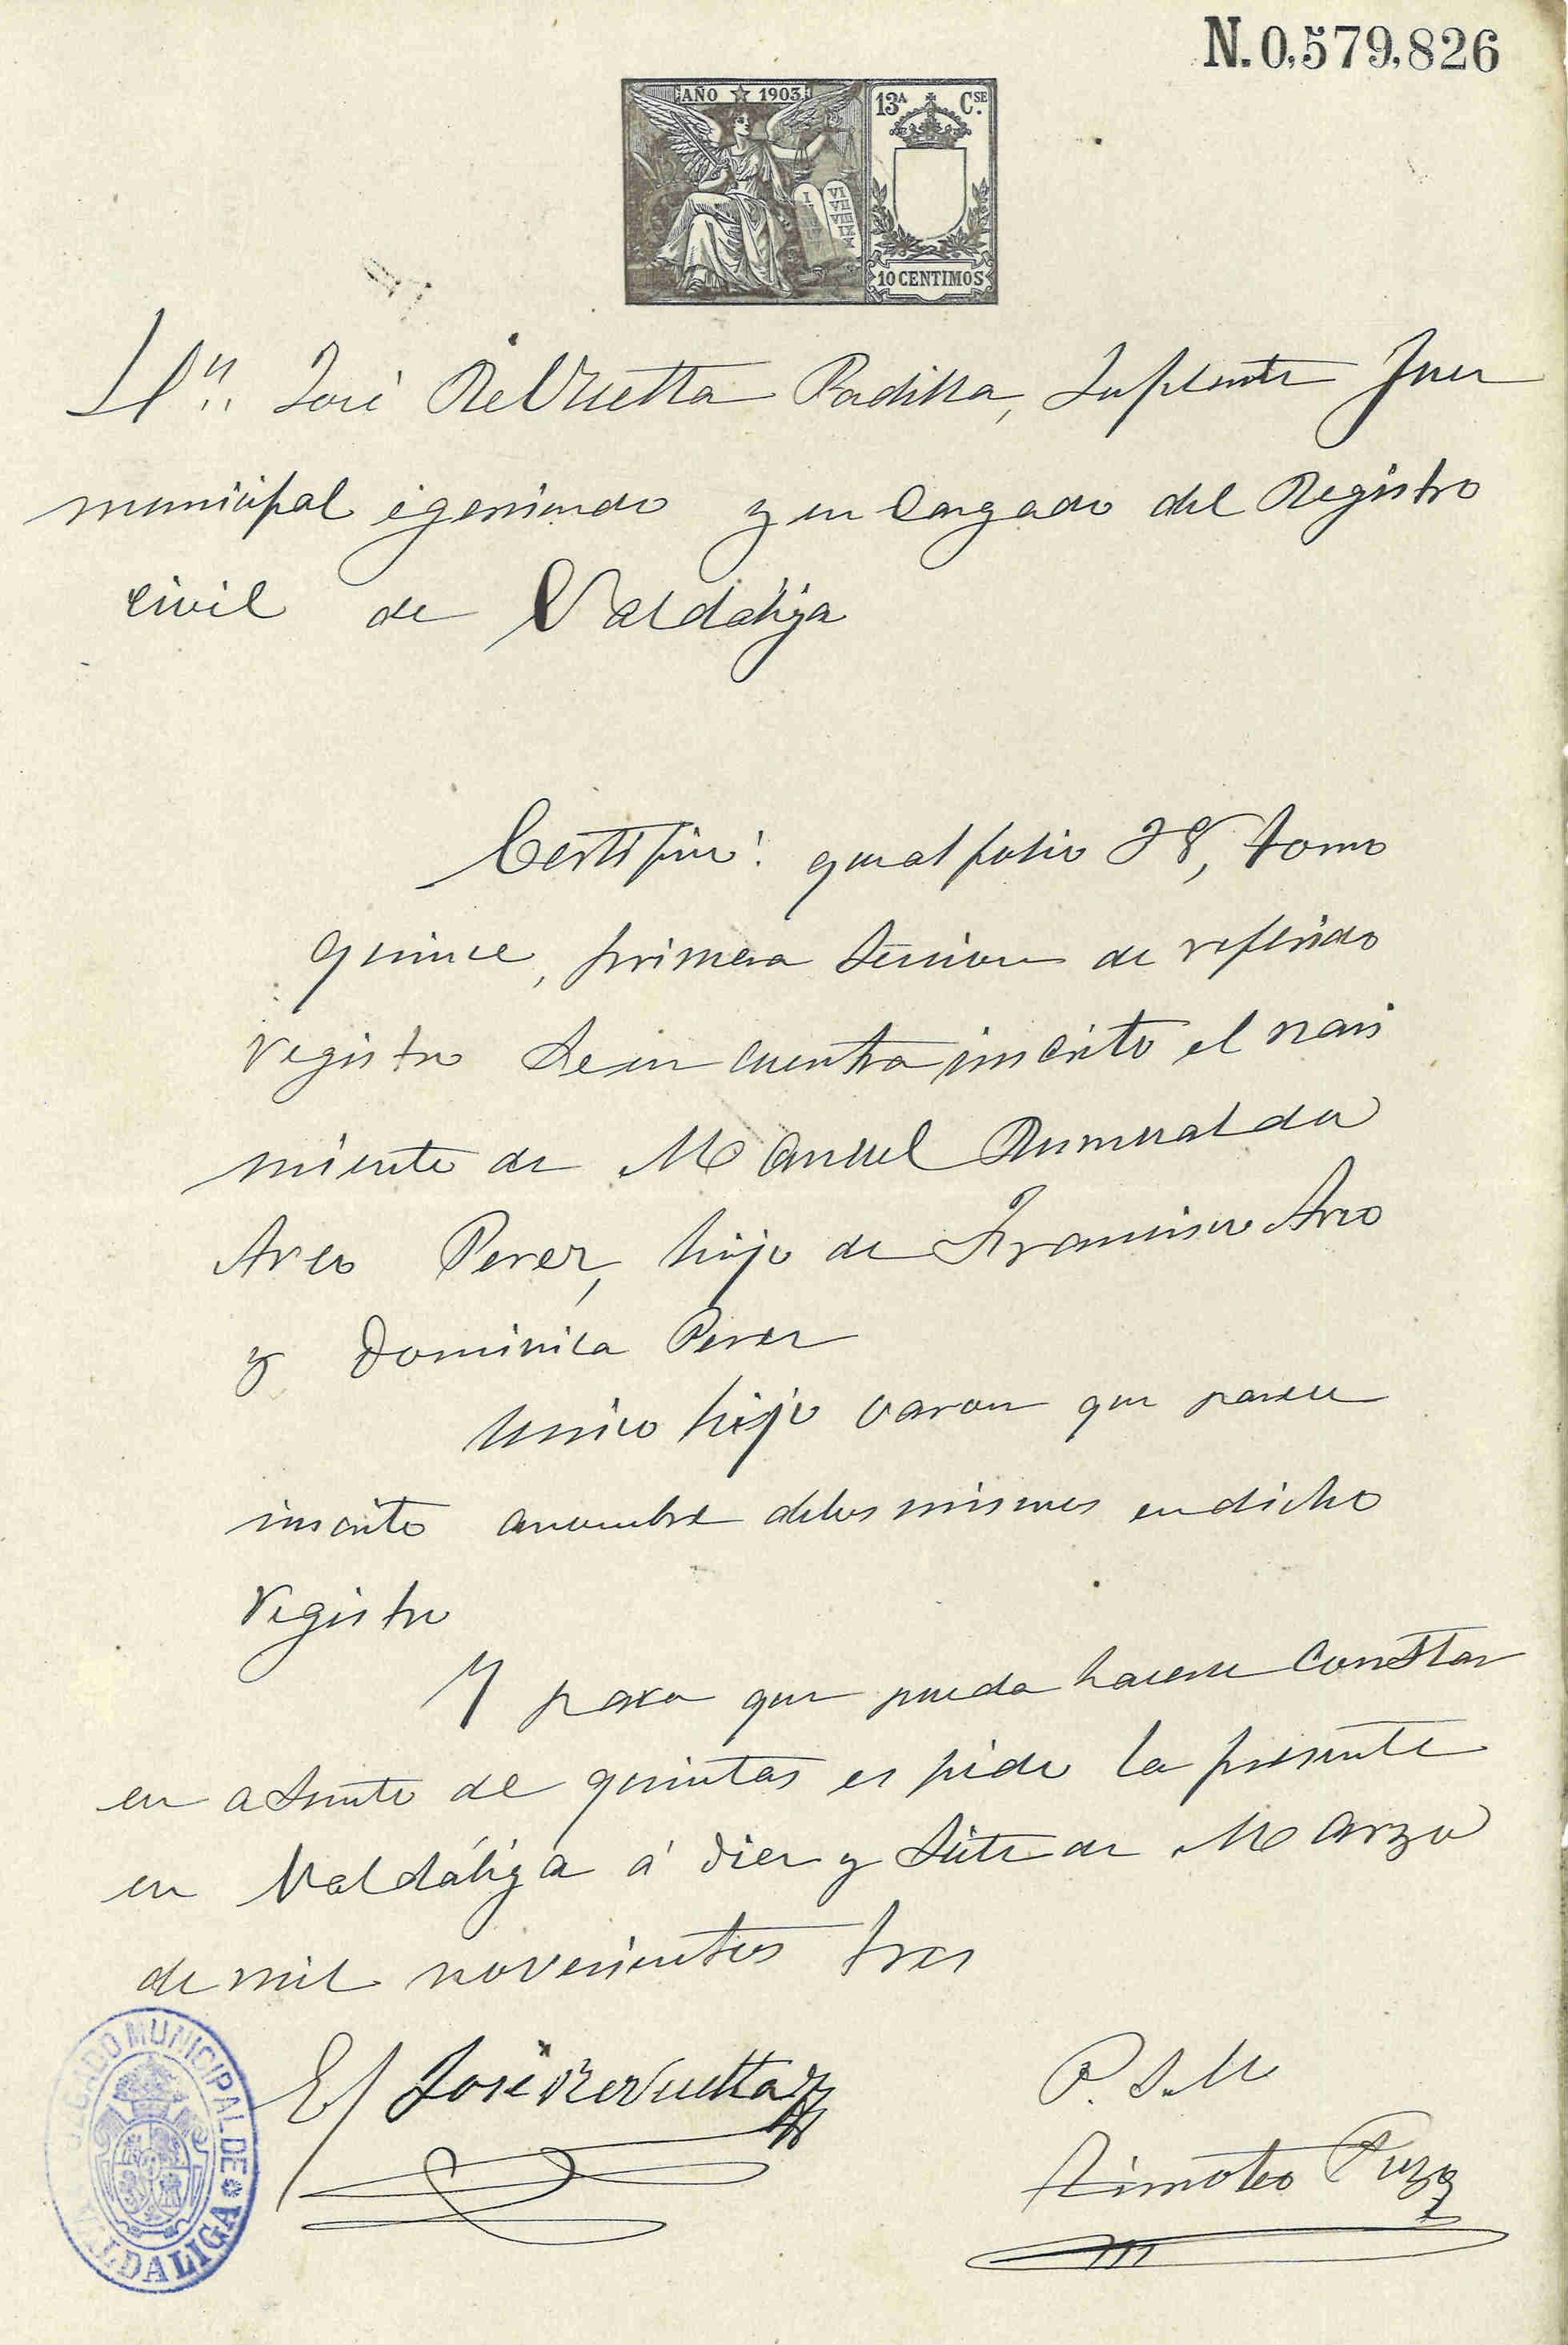 N. 0,579,826
AÑO 1903
13ᴬ Cˢᴱ.
I VI VII VIII IX X
10 CENTIMOS
Dⁿ. José Revuelta Padilla, Suplente Juez
municipal egerciendo y en cargado del Registro
civil de Valdáliga
Certifico: que al folio 28, tomo
quince, primera Seccion de referido
registro se en cuentra inscrito el naci
miento de Manuel Rumualdo
Arco Perez, hijo de Francisco Arco
y Dominica Perez
Unico hijo varon que parece
inscrito anombre delos mismos en dicho
registro
Y para que pueda hacerse constar
en asunto de quintas es pido la presente
en Valdáliga á diez y siete de Marzo
de mil novecientos tres
JUZGADO MUNICIPAL DE VALDALIGA
El José Revuelta
P. S. M
Timoteo